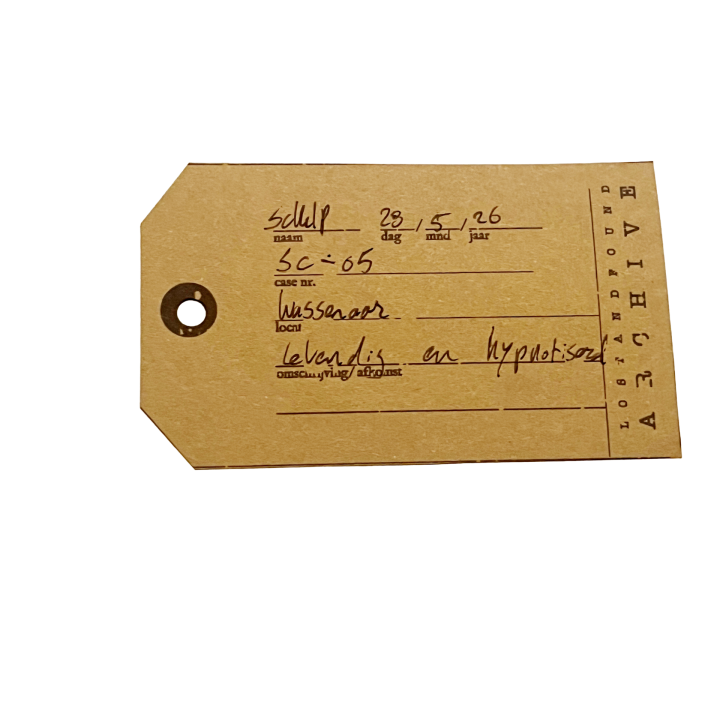 schelp 28 / 5 / 26
naam dag mnd jaar
SC-05
case nr.
Wassenaar
locat
Levendig en hypnotiserend
omschrijving/ afkomst
LOSTANDFOUND
ARCHIVE